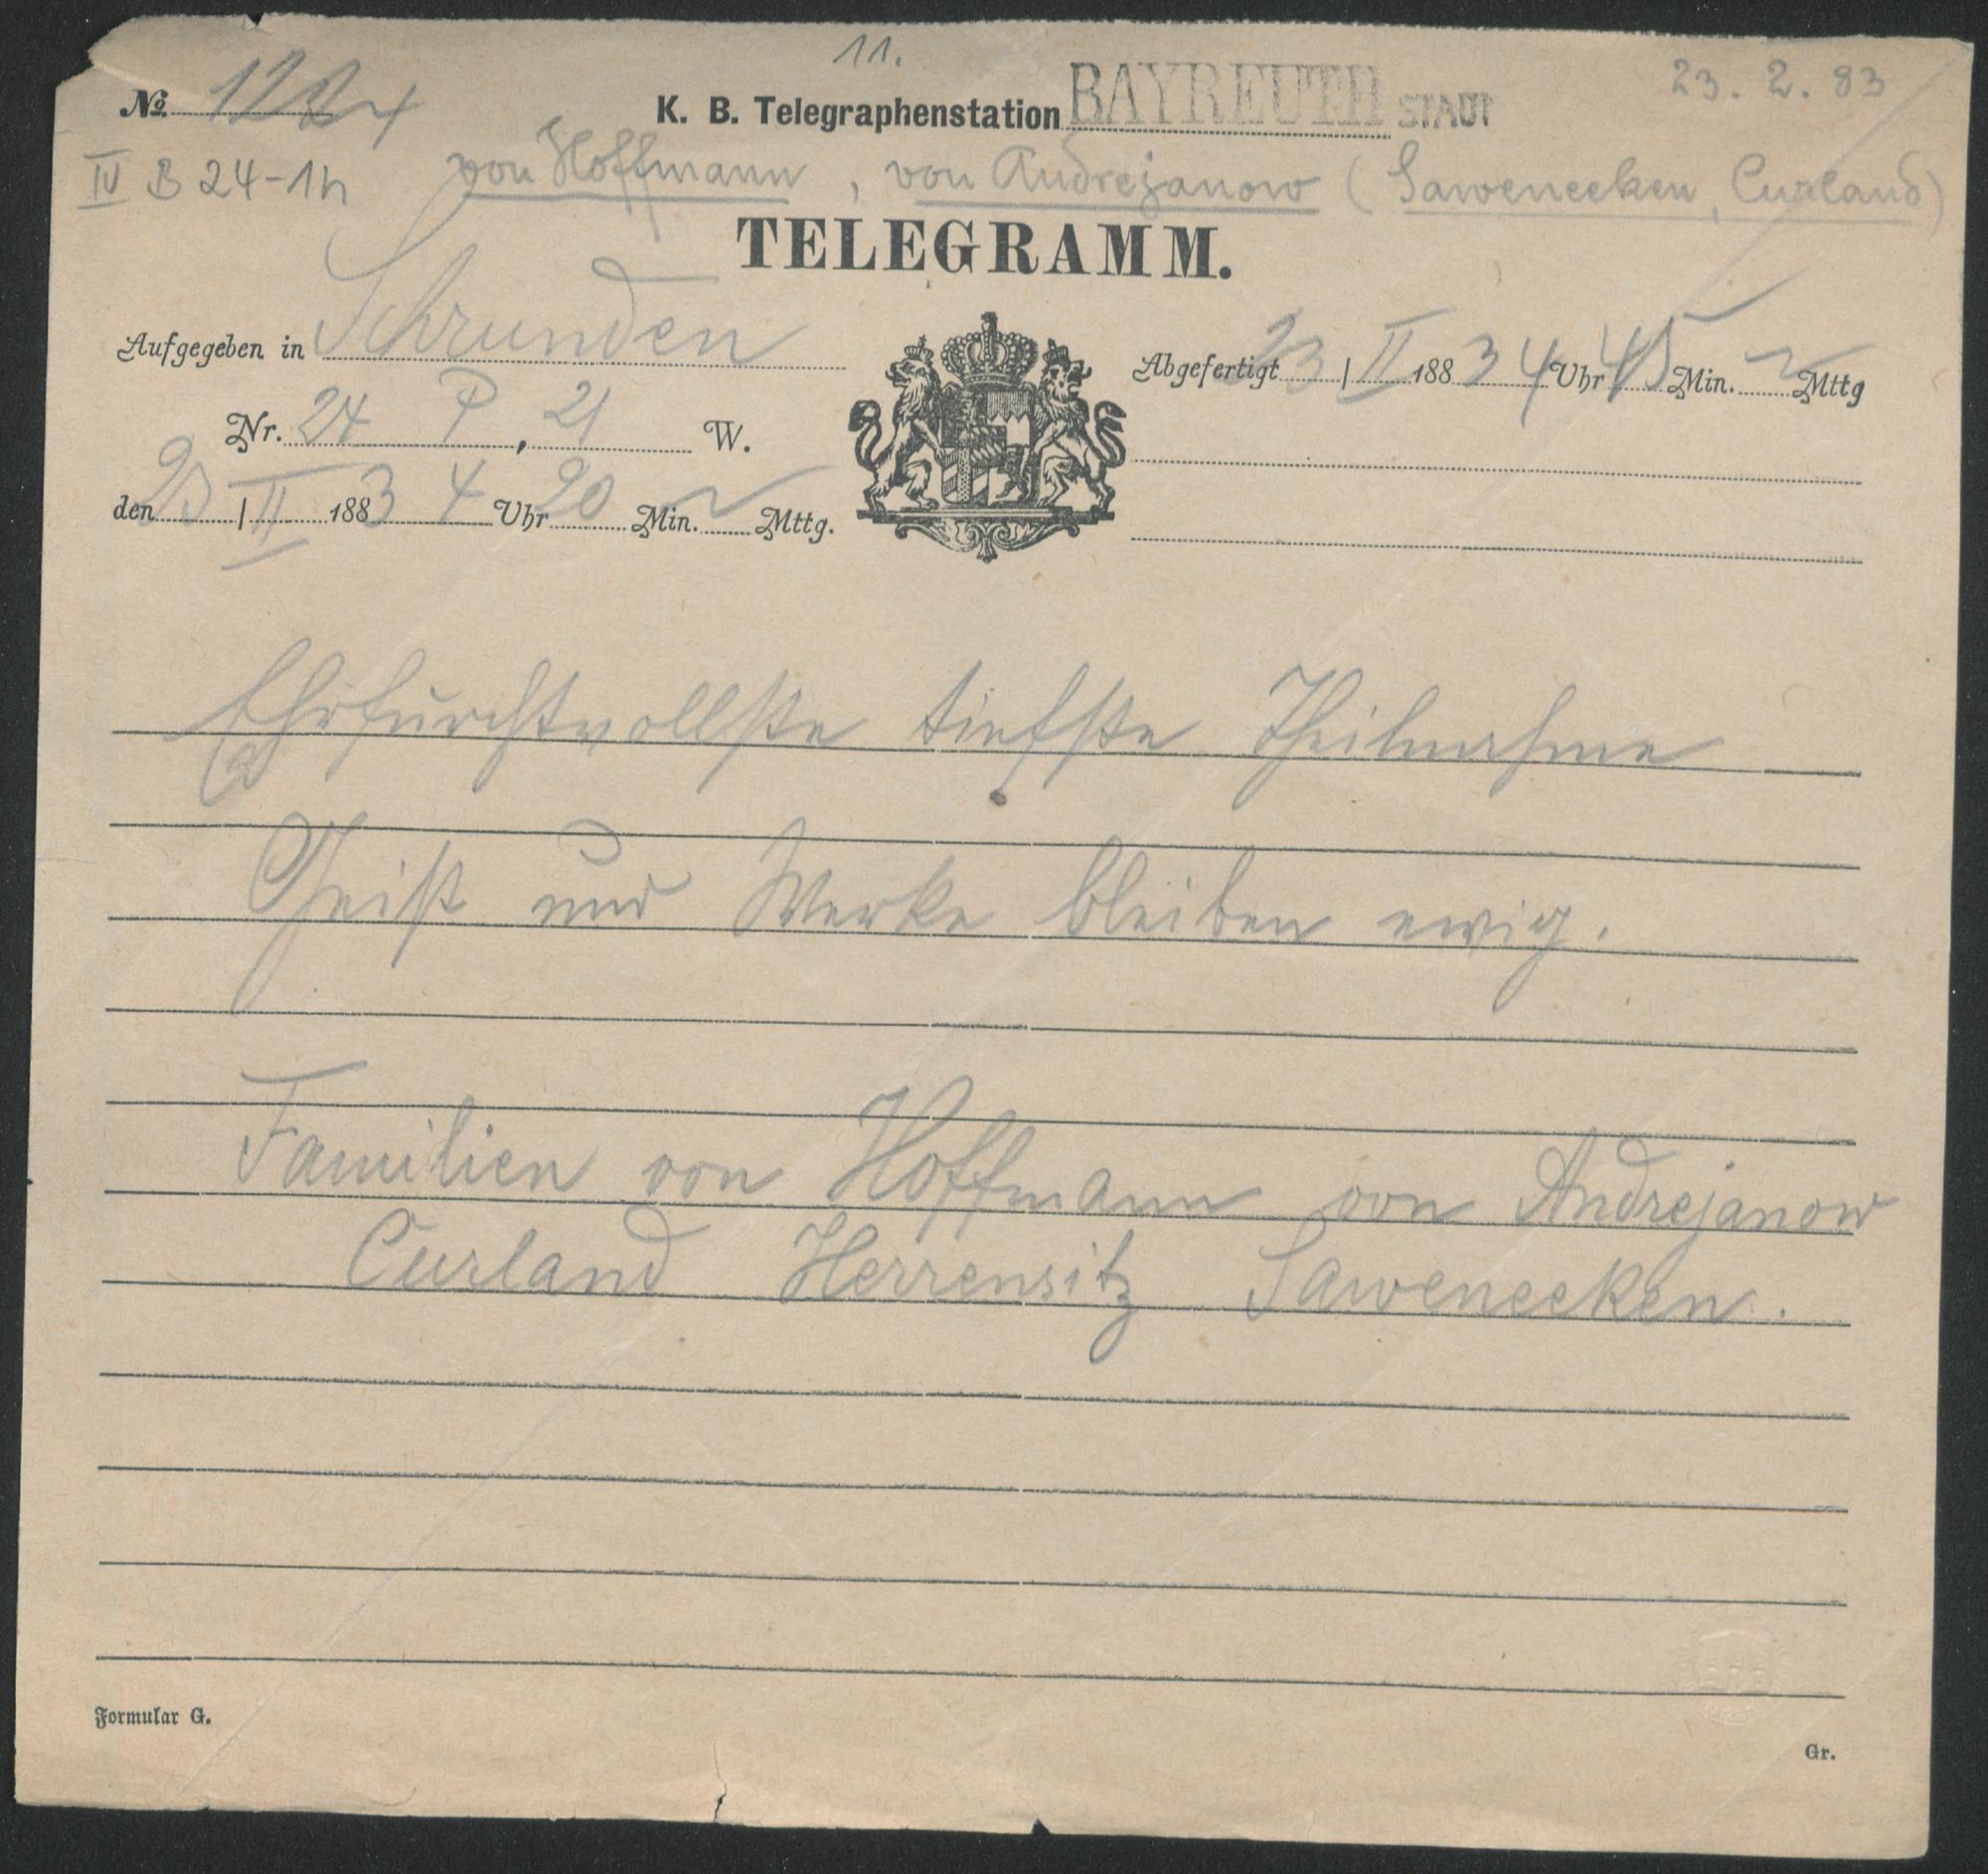 11.
23. 2. 83
№ 1224
K. B. Telegraphenstation BAYREUTH STADT
IV B 24-1h von Hoffmann, von Andrejanow (Saweneeken, Curland)
TELEGRAMM.
Aufgegeben in Schrunden
Abgefertigt 23 / II 1883 4 Uhr 45 Min. Mttg
Nr. 24 P, 21 W.
den 23 / II 1883 4 Uhr 20 Min. Mttg.
Ehrfurchtvollste tiefste Theilnahme
Geist und Werke bleiben ewig.
Familien von Hoffmann von Andrejanow
Curland Herrensitz Saweneeken.
Formular G.
Gr.